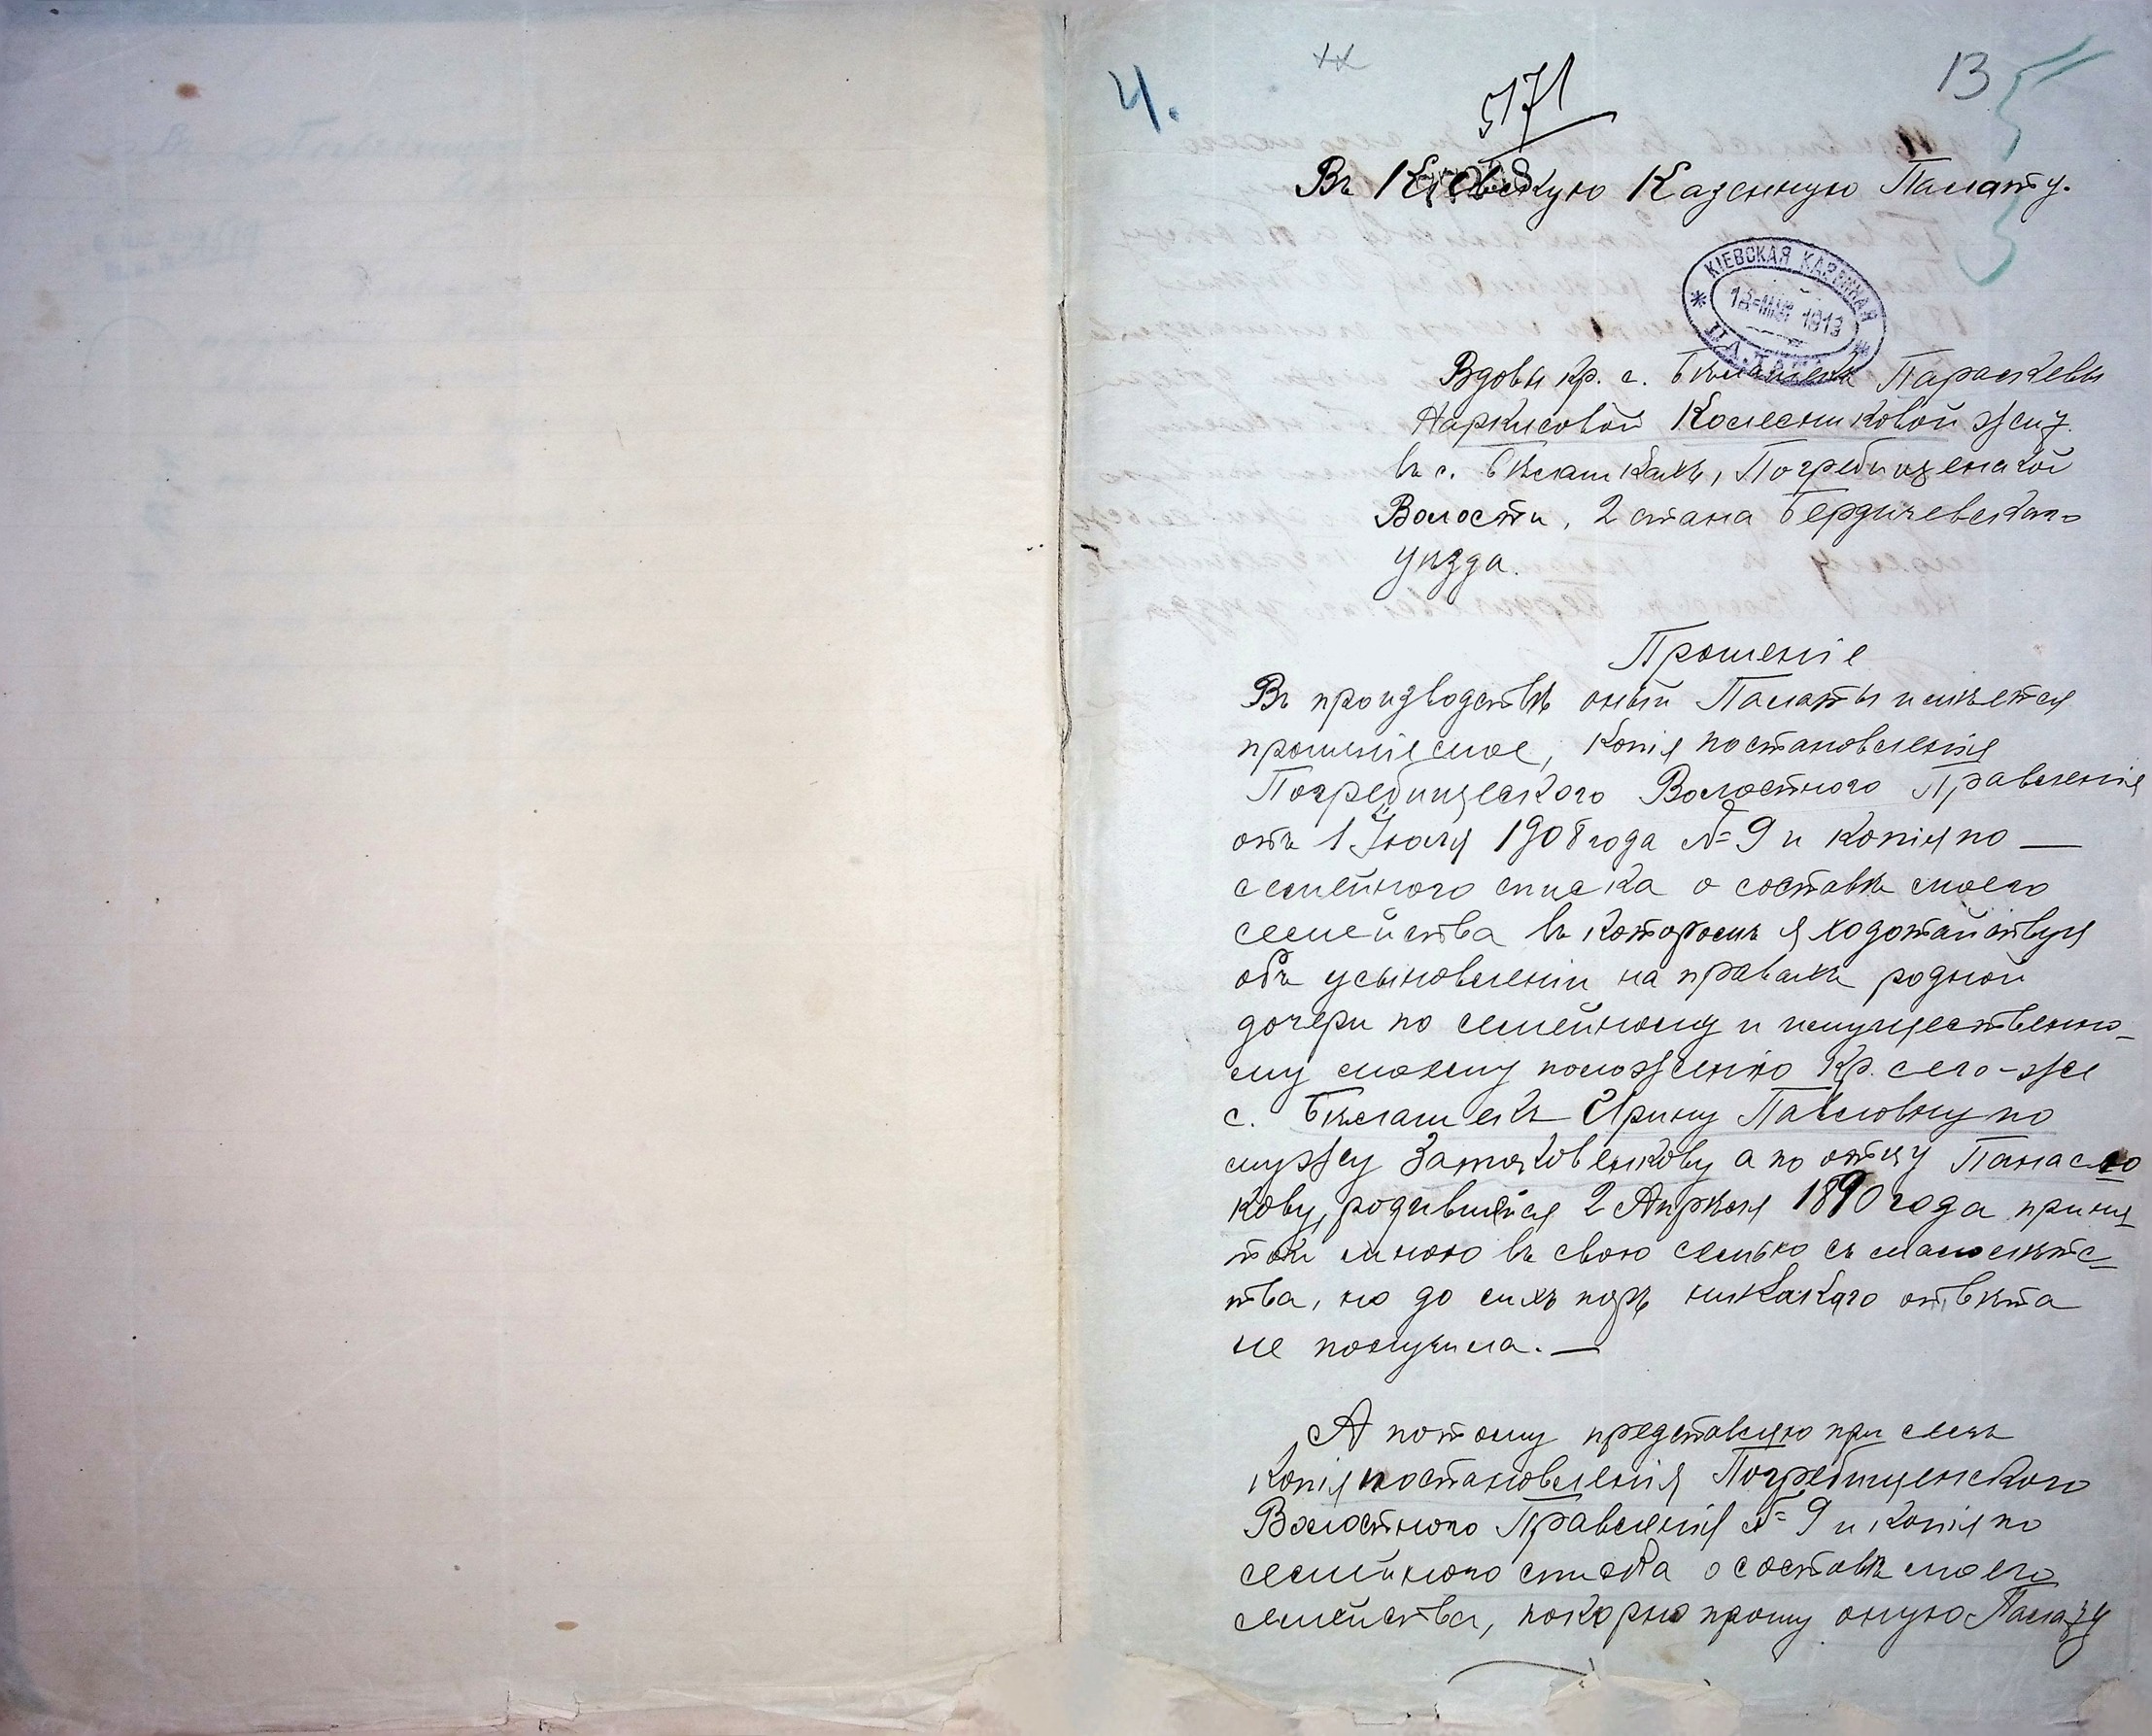 4.
571
13
Въ Кіевскую Казенную Палату.
КІЕВСКАЯ КАЗЕННАЯ
1913
ПАЛАТА
Вдовы кр. с. Бѣлашекъ Параскевы
Наркисовой Колесниковой жит.
въ с. Бѣлашкахъ, Погребищенской
Волости, 2 стана Бердичевскаго
уѣзда.
Прошеніе
Въ производствѣ оный Палаты имѣется
прошеніе мое, копія постановленія
Погребищеского Волостного Правленія
отъ 1 Іюля 1908 года № 9 и копія по —
семейного списка о составѣ моего
семейства въ которомъ я ходотайствуя
объ усыновленіи на правахъ родной
дочери по семейному и имущественно-
му моему положенію кр. сего-же
с. Бѣлашекъ Ирину Павловну по
мужу а по отцу Панасю
кову, родившийся 2 Апрѣля 1890 года приня
той мною въ свою семью съ малолѣтс-
тва, но до сихъ поръ никакого отвѣта
не получила. —
А потому представляю при семъ
копія постановленія Погребищенского
Волостного Правленія № 9 и копія по
семейного списка о составѣ моего
семейства, покорно прошу оную Палату